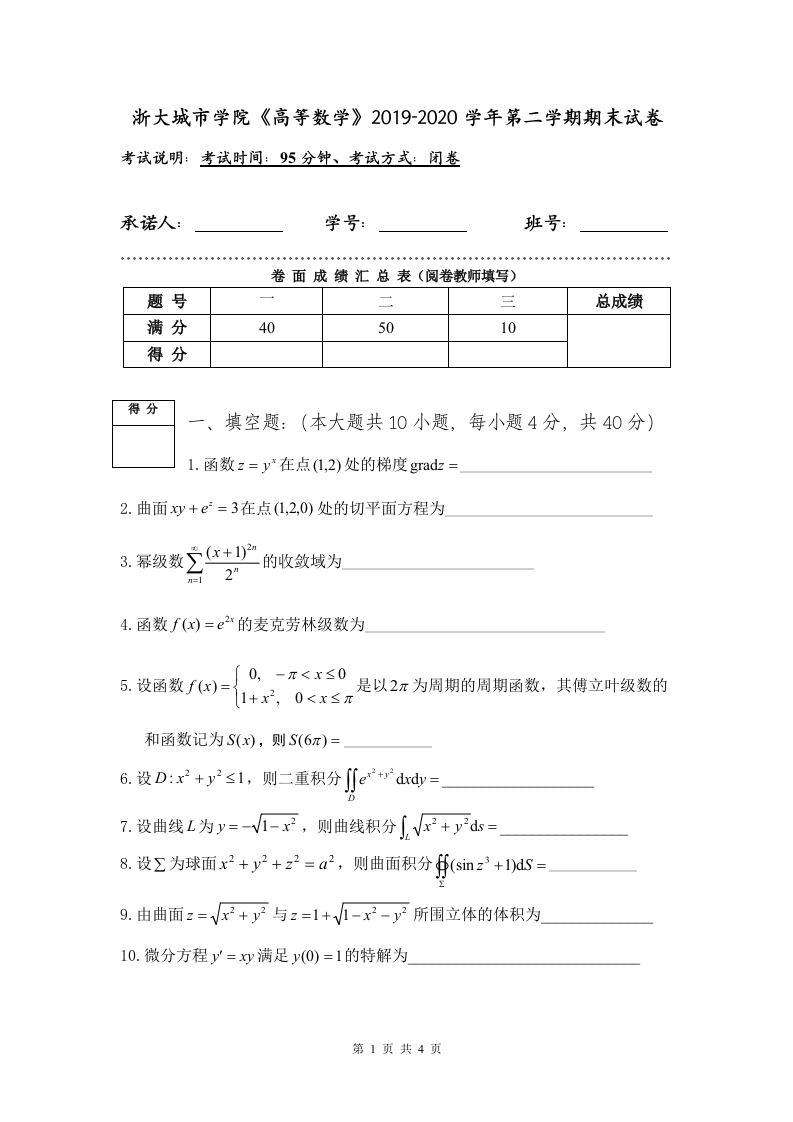 浙大城市学院《高等数学》2019-2020 学年第二学期期末试卷
考试说明：考试时间：95 分钟、考试方式：闭卷
承诺人： ___________ 学号： ___________ 班号： ___________
卷 面 成 绩 汇 总 表（阅卷教师填写）
题 号 一 二 三 总成绩
满 分 40 50 10
得 分
得 分
一、填空题：（本大题共 10 小题，每小题 4 分，共 40 分）
1.函数 z = y^x 在点 (1,2) 处的梯度 gradz = ________________________
2.曲面 xy + e^z = 3 在点 (1,2,0) 处的切平面方程为__________________________
3.幂级数 ∑_{n=1}^{∞} (x+1)^{2n}/2^n 的收敛域为________________________
4.函数 f(x) = e^{2x} 的麦克劳林级数为______________________________
5.设函数 f(x) = { 0, −π < x ≤ 0
1+x², 0 < x ≤ π 是以 2π 为周期的周期函数，其傅立叶级数的
和函数记为 S(x)，则 S(6π) = ___________
6.设 D : x² + y² ≤ 1，则二重积分 ∬_D e^{x²+y²} dxdy = ___________________
7.设曲线 L 为 y = −√(1−x²)，则曲线积分 ∫_L √(x²+y²) ds = ________________
8.设 ∑ 为球面 x² + y² + z² = a²，则曲面积分 ∯_Σ (sin z³ +1)dS = ___________
9.由曲面 z = √(x²+y²) 与 z = 1+√(1−x²−y²) 所围立体的体积为______________
10.微分方程 y′ = xy 满足 y(0) = 1 的特解为_____________________________
第 1 页 共 4 页